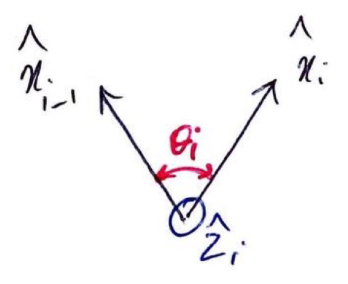 x̂ᵢ₋₁
x̂ᵢ
θᵢ
Ẑᵢ